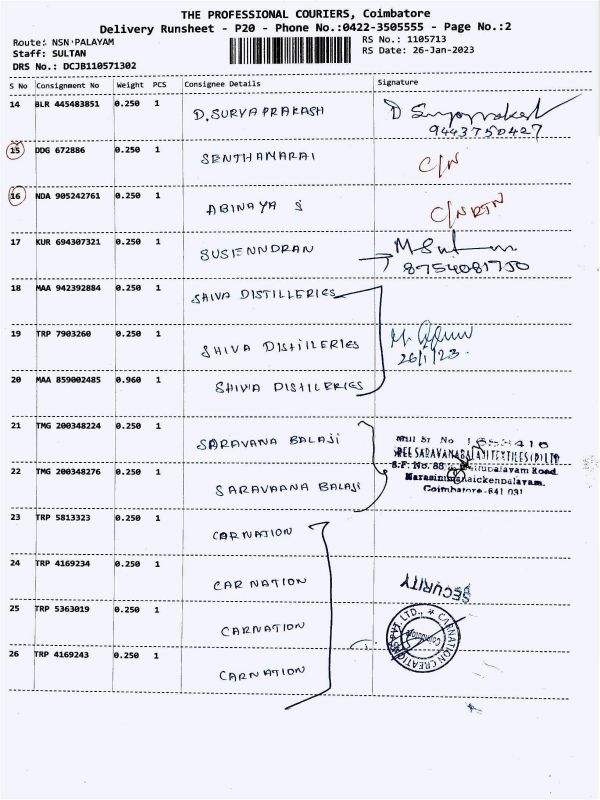 THE PROFESSIONAL COURIERS, Coimbatore
Delivery Runsheet - P20 - Phone No.:0422-3505555 - Page No.:2
Route: NSN PALAYAM
RS No.: 1105713
Staff: SULTAN
RS Date: 26-Jan-2023
DRS No.: DCJB110571302
S No Consignment No Weight PCS Consignee Details Signature
14 BLR 445483851 0.250 1 D.SURYA PRAKASH
9443750427
15 DDG 672886 0.250 1 SENTHAMARAI C/N
16 NDA 905242761 0.250 1 ABINAYA S C/N RTN
17 KUR 694307321 0.250 1 SUSIENNDRAN
8754081750
18 MAA 942392884 0.250 1 SHIVA DISTILLERIES
19 TRP 7903260 0.250 1 SHIVA DISTILLERIES
26/1/23.
20 MAA 859002485 0.960 1 SHIVIA DISTILLERIES
21 TMG 200348224 0.250 1 SARAVANA BALAJI
SREE SARAVANABALAJI TEXTILES (P) LTD
S.F. No. 88 Road.
Narasimmanaickenpalayam.
Coimbatore-641 031
22 TMG 200348276 0.250 1 SARAVAANA BALAJI
23 TRP 5813323 0.250 1 CARNATION
24 TRP 4169234 0.250 1 CARNATION
SECURITY
25 TRP 5363019 0.250 1 CARNATION
CARNATION CREATIONS PVT. LTD.,
Coimbatore
26 TRP 4169243 0.250 1 CARNATION